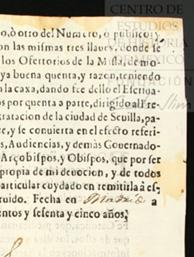 CENTRO DE
ESTUDIOS
o, ò otro del Numero, o publico, y
on las mismas tres llaves, donde se
los Ofertorios de la Missa, demo-
ya buena quenta, y razon, teniendo
la caxa, dando fee dello el Escriua-
os por quenta a parte, dirigido al Pre-
tratacion de la ciudad de Seuilla, pa-
te, y se conuierta en el efecto referi-
s, Audiencias, y demàs Gouernado-
Arçobispos, y Obispos, que por ser
propia de mi deuocion, y de todos
articular cuydado en remitirla à es-
ruido. Fecha en Madrid a
entos y sesenta y cinco años,